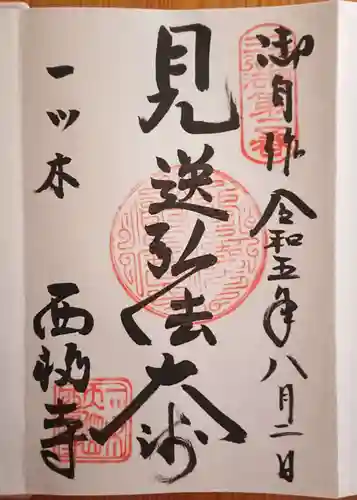 御自作 令和五年八月二日
見送弘法大師
一ツ木
西福寺